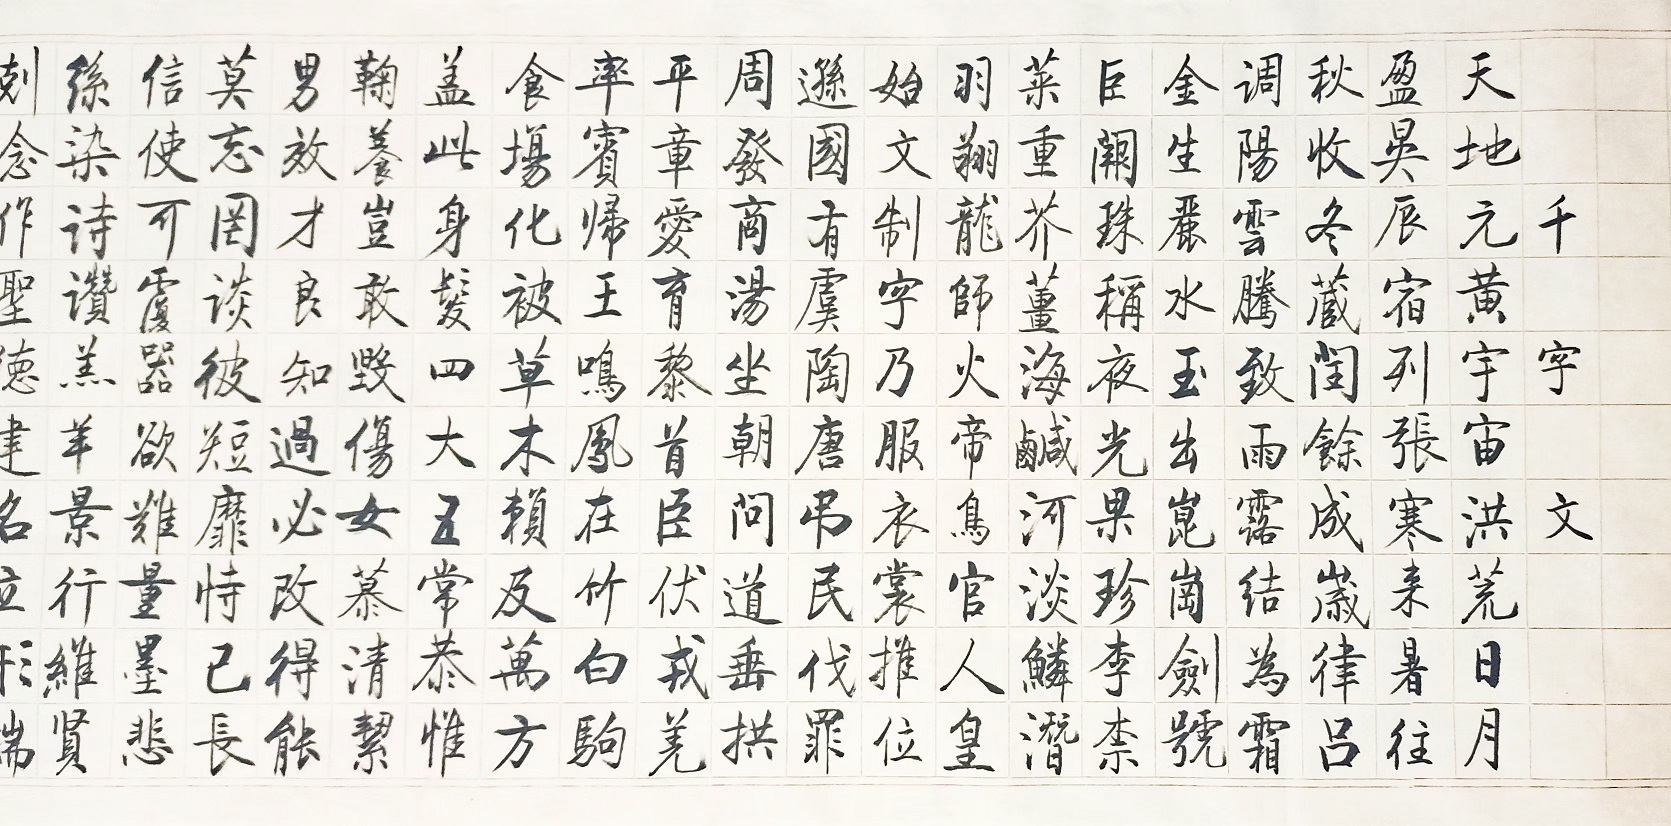 千字文
天地元黄宇宙洪荒日月
盈昃辰宿列張寒来暑往
秋收冬蔵閏餘成歲律吕
调陽雲騰致雨露结為霜
金生麗水玉出崑崗劍號
巨闕珠稱夜光果珍李柰
菜重芥薑海鹹河淡鱗潛
羽翔龍師火帝鳥官人皇
始文制字乃服衣裳推位
遜國有虞陶唐弔民伐罪
周發商湯坐朝問道垂拱
平章愛育黎首臣伏戎羌
率賓帰王鳴鳳在竹白駒
食場化被草木賴及萬方
盖此身髮四大五常恭惟
鞠養豈敢毀傷女慕清絜
男效才良知過必改得能
莫忘罔談彼短靡恃己長
信使可覆器欲難量墨悲
絲染詩讚羔羊景行維賢
剋念作聖德建名立形端